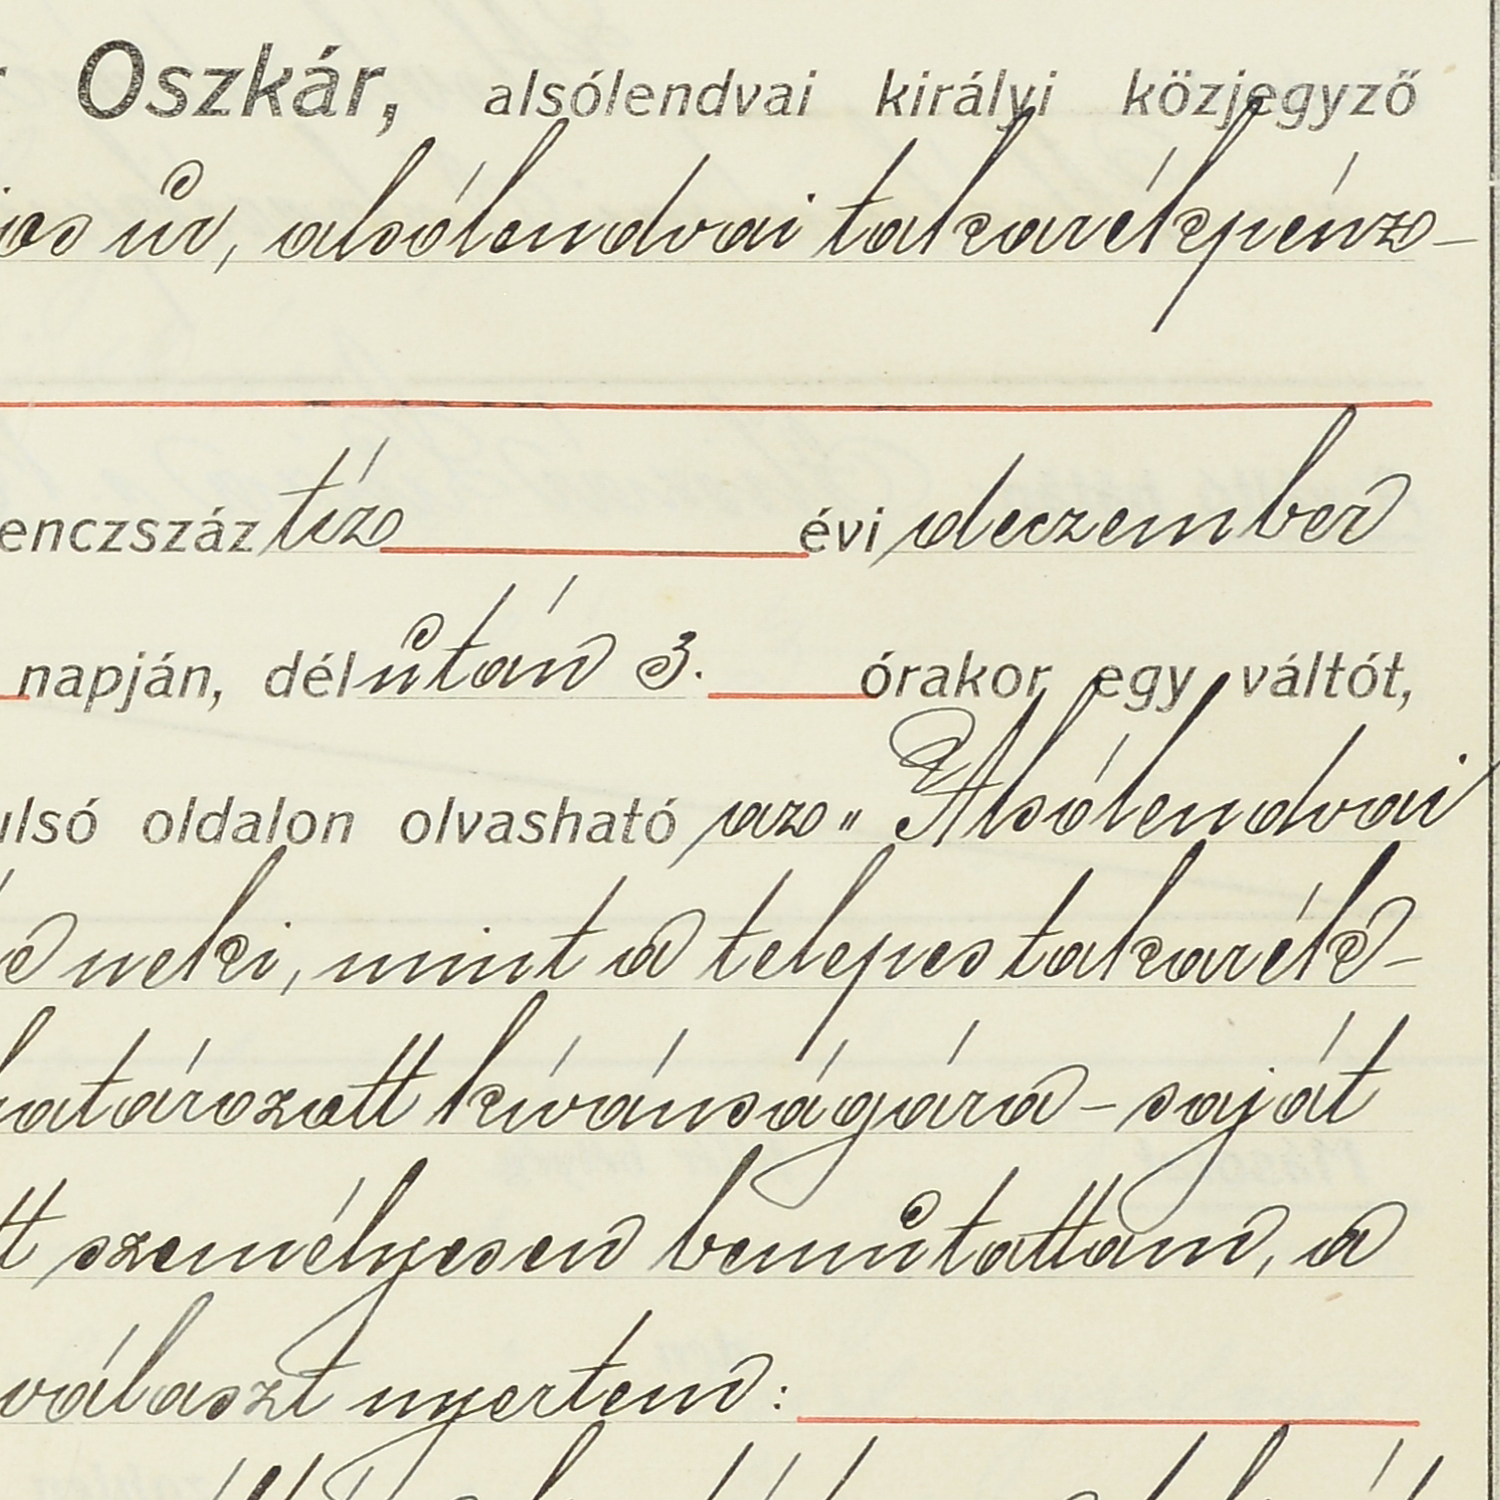 Oszkár, alsólendvai királyi közjegyző
úr, alsólendvai takarékpénz-
enczszáz tíz évi deczember
napján, délután 3. órakor egy váltót,
ulsó oldalon olvasható az „Alsólendvai
neki, mint a telepes takarék-
határozott kívánságára - saját
tt személyesen bemutattam, a
választ nyertem: